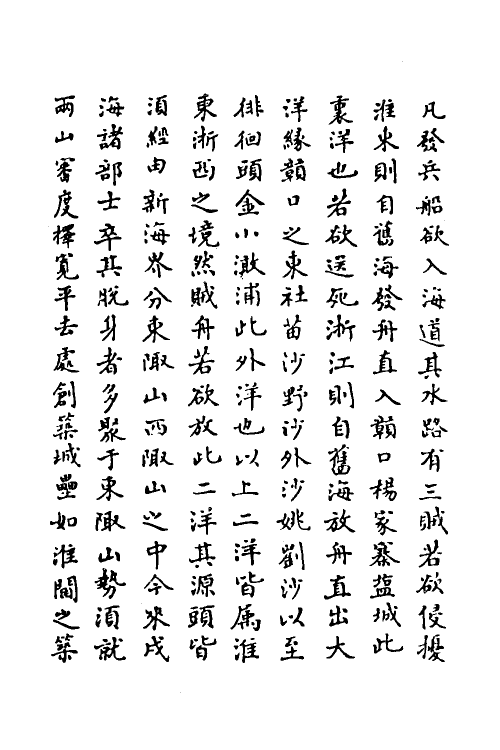 凡發兵船欲入海道其水路有三賊若欲侵擾
淮東則自舊海發舟直入贑口楊家寨塩城此
裏洋也若欲送死浙江則自舊海放舟直出大
洋緣贑口之東社苗沙野沙外沙姚劉沙以至
徘徊頭金小澉浦此外洋也以上二洋皆属淮
東浙西之境然賊舟若欲放此二洋其源頭皆
湏經由新海界分東陬山西陬山之中今來戍
海諸部士卒其脫身者多聚于東陬山勢湏就
兩山審度擇寛平去處創築城壘如淮閫之築